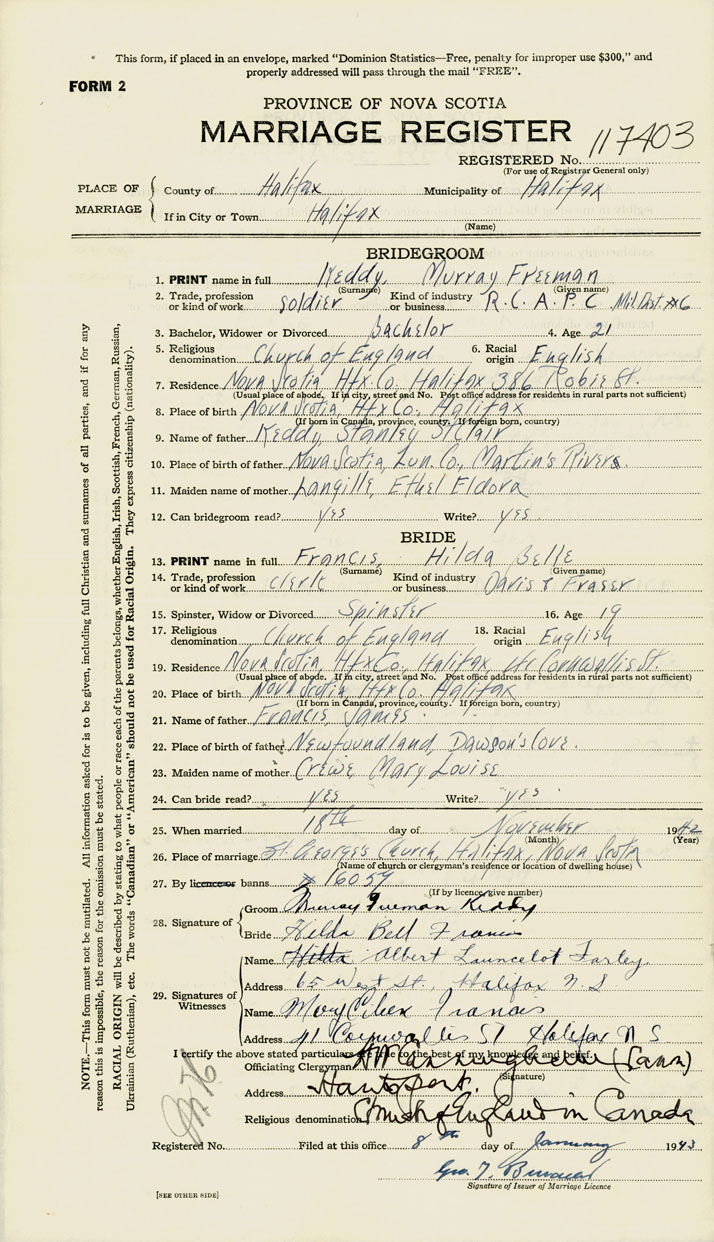 This form, if placed in an envelope, marked "Dominion Statistics—Free, penalty for improper use $300," and
properly addressed will pass through the mail "FREE".
FORM 2
PROVINCE OF NOVA SCOTIA
MARRIAGE REGISTER
REGISTERED No. 117403
(For use of Registrar General only)
PLACE OF MARRIAGE
County of Halifax Municipality of Halifax
If in City or Town Halifax
(Name)
BRIDEGROOM
1. PRINT name in full Keddy, Murray Freeman
(Surname) (Given name)
2. Trade, profession or kind of work Soldier Kind of industry or business R.C.A.P.C Mil. Dist. #6
3. Bachelor, Widower or Divorced Bachelor 4. Age 21
5. Religious denomination Church of England 6. Racial origin English
7. Residence Nova Scotia, Hfx Co. Halifax 386 Robie St.
(Usual place of abode. If in city, street and No. Post office address for residents in rural parts not sufficient)
8. Place of birth Nova Scotia, Hfx Co., Halifax
(If born in Canada, province, county. If foreign born, country)
9. Name of father Keddy Stanley StClair
10. Place of birth of father Nova Scotia, Lun. Co., Martin's Rivers.
11. Maiden name of mother Langille, Ethel Eldora
12. Can bridegroom read? yes Write? yes.
BRIDE
13. PRINT name in full Francis, Hilda Belle
(Surname) (Given name)
14. Trade, profession or kind of work Clerk Kind of industry or business Davis & Fraser
15. Spinster, Widow or Divorced Spinster 16. Age 19
17. Religious denomination Church of England 18. Racial origin English
19. Residence Nova Scotia, Hfx Co., Halifax, 41 Cornwallis St.
(Usual place of abode. If in city, street and No. Post office address for residents in rural parts not sufficient)
20. Place of birth Nova Scotia, Hfx Co. Halifax
(If born in Canada, province, county. If foreign born, country)
21. Name of father Francis, James
22. Place of birth of father Newfoundland, Dawson's Cove.
23. Maiden name of mother Crewe, Mary Louise
24. Can bride read? yes Write? yes
25. When married 18th day of November 1942
(Month) (Year)
26. Place of marriage St. George's Church, Halifax, Nova Scotia
(Name of church or clergyman's residence or location of dwelling house)
27. By licence or banns # 16059
(If by licence, give number)
28. Signature of
Groom Murray Freeman Keddy
Bride Hilda Bell Francis
29. Signatures of Witnesses
Name Hilda Albert Launcelot Farley.
Address 65 West St., Halifax N.S
Name Mary Francis
Address 41 Cornwallis St Halifax N S
I certify the above stated particulars are true to the best of my knowledge and belief.
Officiating Clergyman
(Signature)
Address Hantsport.
Religious denomination Church of England in Canada
Registered No. Filed at this office 8th day of January 1943
Geo. T.
Signature of Issuer of Marriage Licence
[SEE OTHER SIDE]
NOTE.—This form must not be mutilated. All information asked for is to be given, including full Christian and surnames of all parties, and if for any
reason this is impossible, the reason for the omission must be stated.
RACIAL ORIGIN will be described by stating to what people or race each of the parents belongs, whether English, Irish, Scottish, French, German, Russian,
Ukrainian (Ruthenian), etc. The words "Canadian" or "American" should not be used for Racial Origin. They express citizenship (nationality).